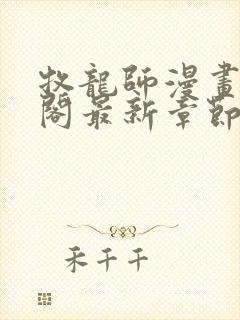 牧龍師漫畫
閣最新章節
禾千千